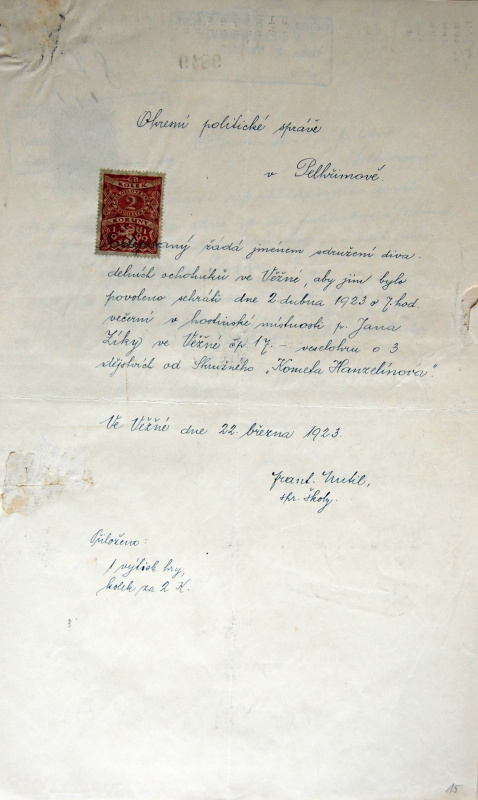 Okresní politické správě
v Pelhřimově.
ČR
KOLEK
2
KORUNY
Podepsaný žádá jménem sdružení diva
delních ochotníků ve Věžné, aby jim bylo
povoleno sehráti dne 2. dubna 1923 o 7. hod
večerní v hostinské místnosti p. Jana
Ziky ve Věžné čp 17.- veselohru o 3
dějstvích od Skružného „Kometa Hanzelínova".
Ve Věžné dne 22. března 1923.
Frant.
spr. školy.
Přiloženo:
1 výtisk hry,
kolek za 2 K.
15